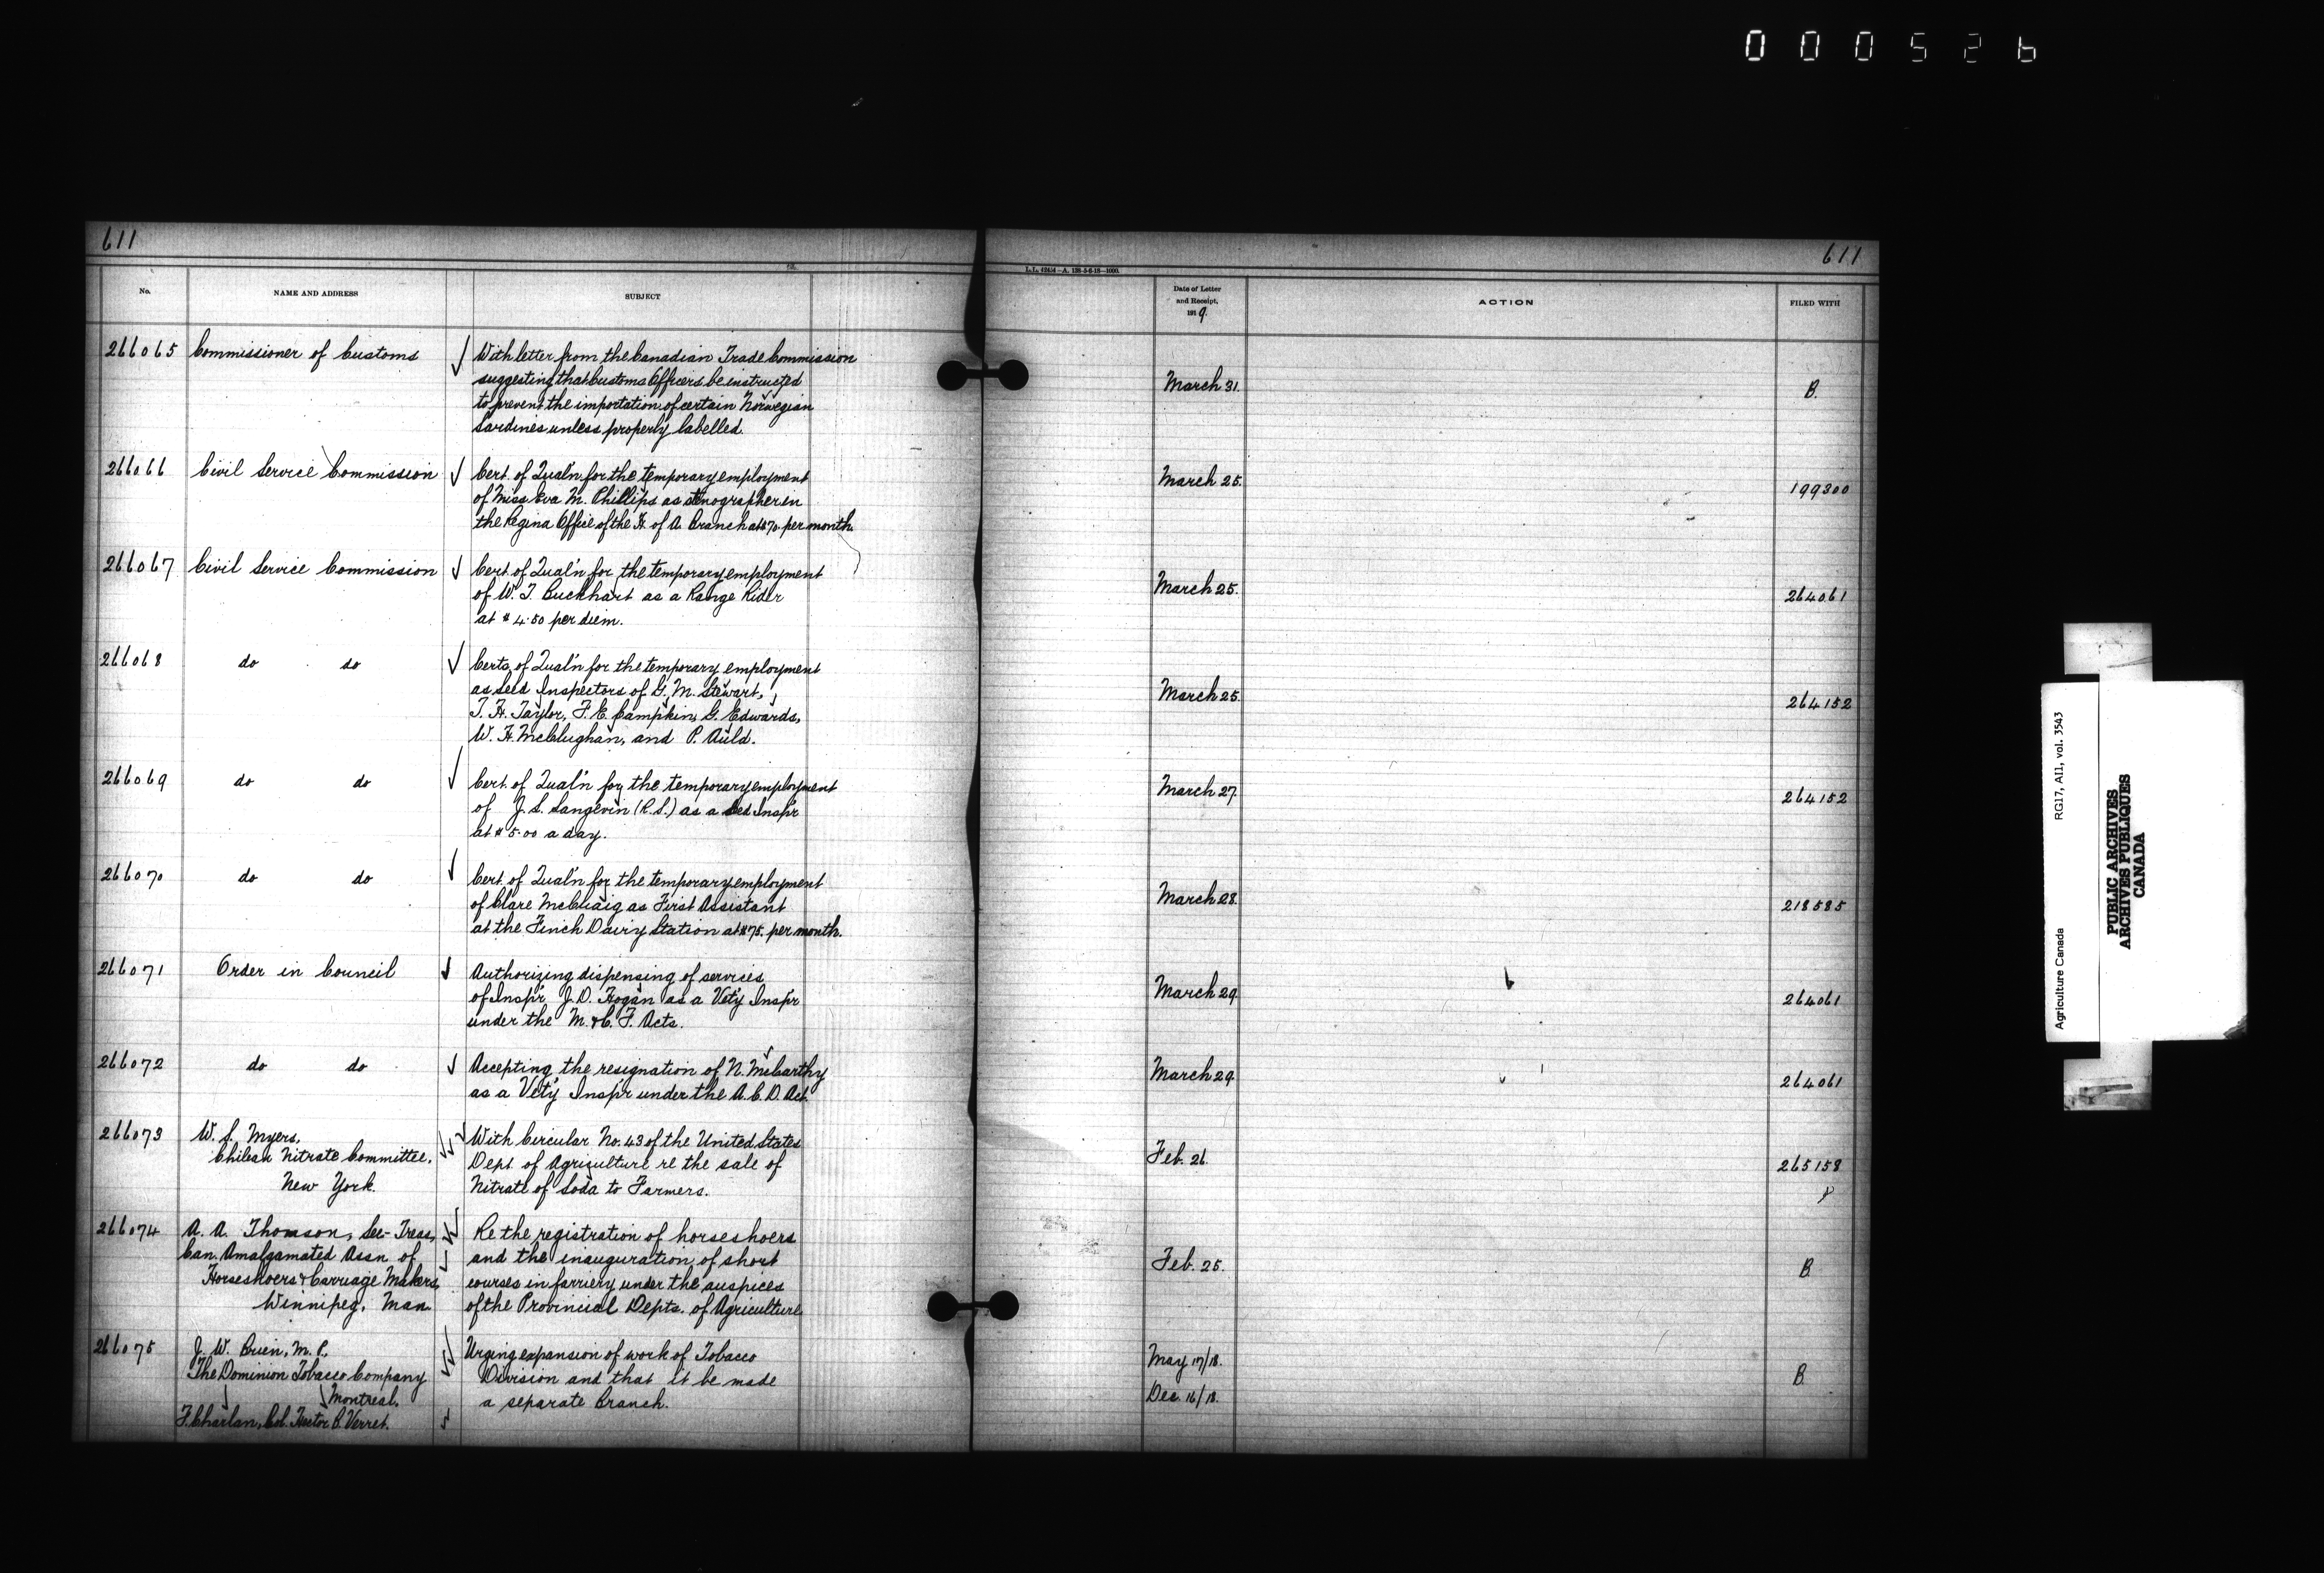 000526
611
611
L.L. 42454—A. 138-5-6-18—1000.
No.
NAME AND ADDRESS
SUBJECT
Date of Letter
and Receipt,
1919.
ACTION
FILED WITH
266065
Commissioner of Customs
With letter from the Canadian Trade Commission
suggesting that Customs Officers be instructed
to prevent the importation of certain Norwegian
Sardines unless properly labelled.
March 31.
B.
266066
Civil Service Commission
Cert. of Qual'n for the temporary employment
of Miss Eva M. Phillips as stenographer in
the Regina Office of the H. of A. Branch at $70. per month.
March 25.
199300
266067
Civil Service Commission
Cert. of Qual'n for the temporary employment
of W. T. Buckhart as a Range Rider
at $4.50 per diem.
March 25.
264061
266068
do do
Certs. of Qual'n for the temporary employment
as Seed Inspectors of G. M. Stewart,
T. H. Taylor, F. E. Campkin, G. Edwards,
W. H. McClughan, and P. Auld.
March 25.
264152
266069
do do
Cert. of Qual'n for the temporary employment
of J. S. Langevin (R.S.) as a Seed Insp'r
at $5.00 a day.
March 27.
264152
266070
do do
Cert. of Qual'n for the temporary employment
of Clare McCuaig as First Assistant
at the Finch Dairy Station at $75. per month.
March 28.
218585
266071
Order in Council
Authorizing dispensing of services
of Insp'r J. D. Hogan as a Vet'y Insp'r
under the M. & C. F. Acts.
March 29.
264061
266072
do do
Accepting the resignation of N. McCarthy
as a Vet'y Insp'r under the A. C. D. Act.
March 29.
264061
266073
W. S. Myers,
Chilean Nitrate Committee,
New York.
With Circular No. 43 of the United States
Dept. of Agriculture re the sale of
Nitrate of Soda to Farmers.
Feb. 26.
265158
266074
A. A. Thomson, Sec-Treas.
Can. Amalgamated Assn. of
Horseshoers & Carriage Makers,
Winnipeg, Man.
Re the registration of horseshoers
and the inauguration of short
courses in farriery under the auspices
of the Provincial Depts. of Agriculture
Feb. 25.
B.
266075
J. W. Brien, M.P.
The Dominion Tobacco Company
Montreal.
F. Charlan, Col. Hector B. Verret.
Urging expansion of work of Tobacco
Division and that it be made
a separate Branch.
May 17/18.
Dec. 16/18.
B.
Agriculture Canada RG17, A11, vol. 3543
PUBLIC ARCHIVES
ARCHIVES PUBLIQUES
CANADA